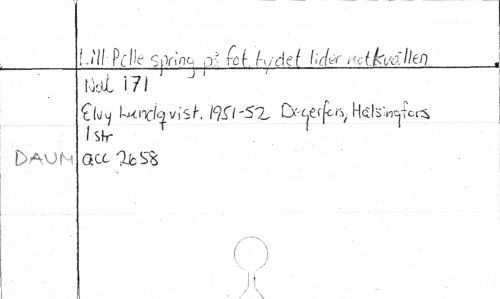 Lill-Pelle spring på fot, ty det lider mot kvällen
Nal 171
Elvy Lundqvist. 1951-52 Degerfors, Hälsingfors
1 str
DAUM acc 2658